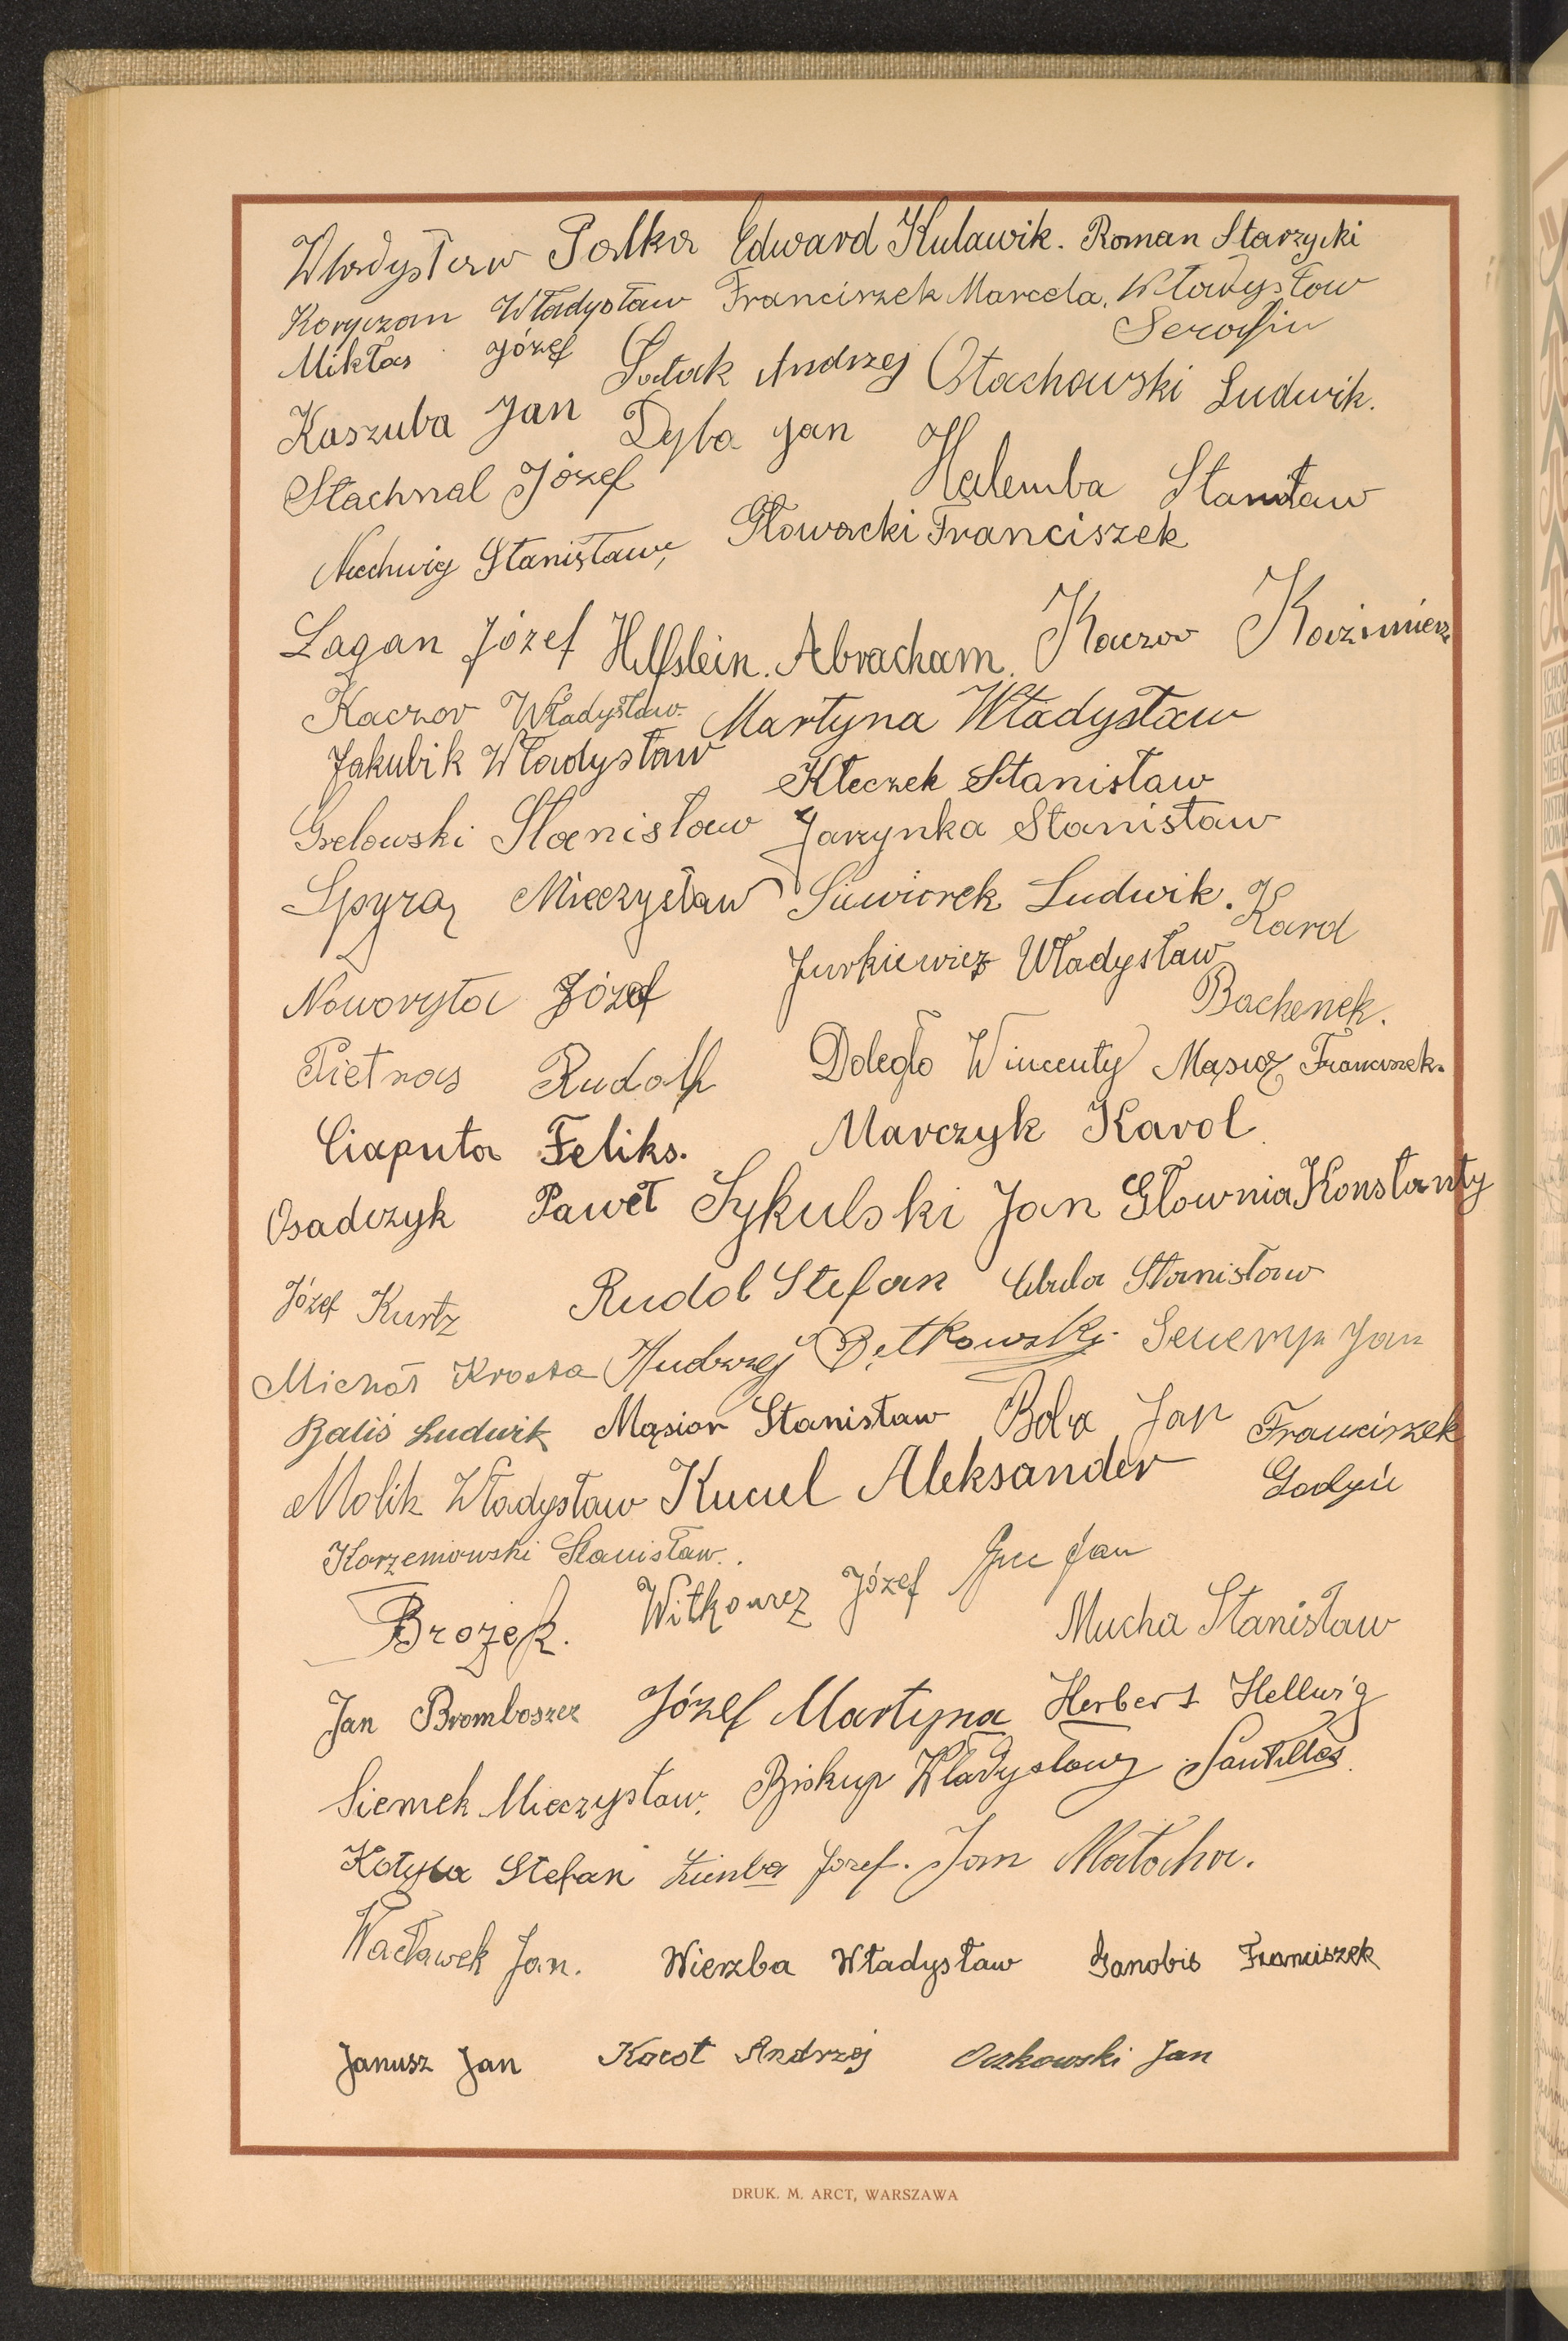 Władysław Palka Edward Kulawik. Roman Starzycki
Koryczan Władysław Franciszek Marcela. Władysław Serafin
Mikłas Józef Sałak Andrzej Stachowski Ludwik.
Kaszuba Jan Dyba Jan
Stachnal Józef Halemba Stanisław
Niechwiej Stanisław, Głowacki Franciszek
Łagan Józef Hilfstein. Abracham. Kaczor Kazimierz
Kaczor Władysław. Martyna Władysław
Jakubik Władysław Kłeczek Stanisław
Grelowski Stanisław Jarzynka Stanisław
Spyra Mieczysław Siewiorek Ludwik. Karol Bachenek.
Noworyta Józef Jurkiewicz Władysław
Pietras Rudolf Doległo Wincenty Mąsior Franciszek.
Ciaputa Feliks. Marczyk Karol.
Osadczyk Paweł Sykulski Jan Głownia Konstanty
Józef Kurtz Rudol Stefan Cebula Stanisław
Michał Krosta Andrzej Pętkowski Seweryn Jan
Baliś Ludwik Mąsior Stanisław Boba Jan Franciszek Gadyń
Molik Władysław Kuciel Aleksander
Korzeniowski Stanisław.
Brożek. Witkowicz Józef Guc Jan
Mucha Stanisław
Jan Bromboszcz Józef Martyna Herbert Hellwig
Siemek Mieczysław. Biskup Władysław
Kotyba Stefan Ziemba Józef. Jan Małocha.
Wacławek Jan. Wierzba Władysław Janobis Franciszek
Janusz Jan Kacot Andrzej Oczkowski Jan
DRUK. M. ARCT, WARSZAWA